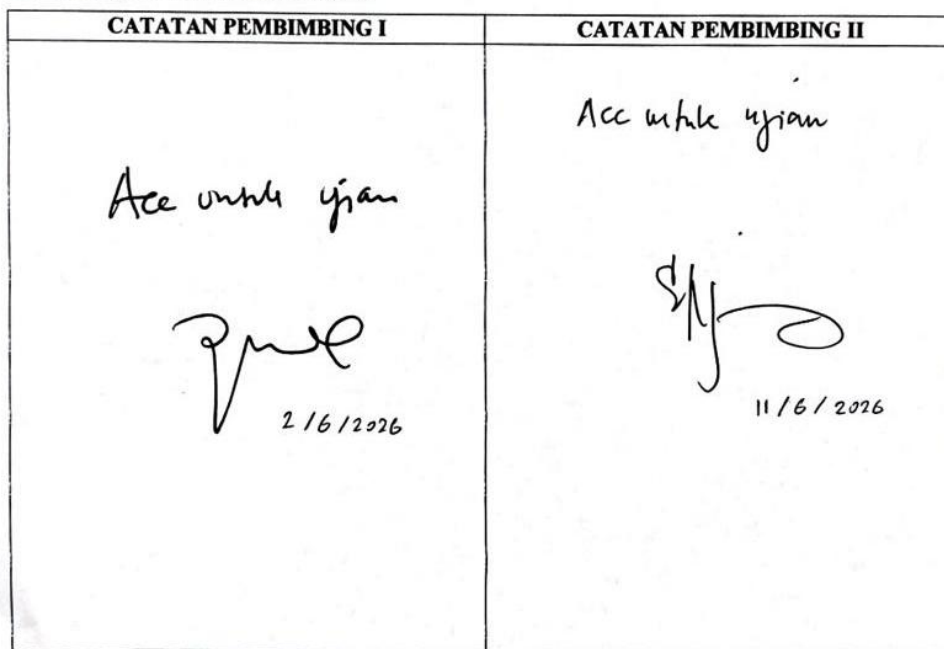 CATATAN PEMBIMBING I
CATATAN PEMBIMBING II
Acc untuk ujian
2/6/2026
Acc untuk ujian
11/6/2026